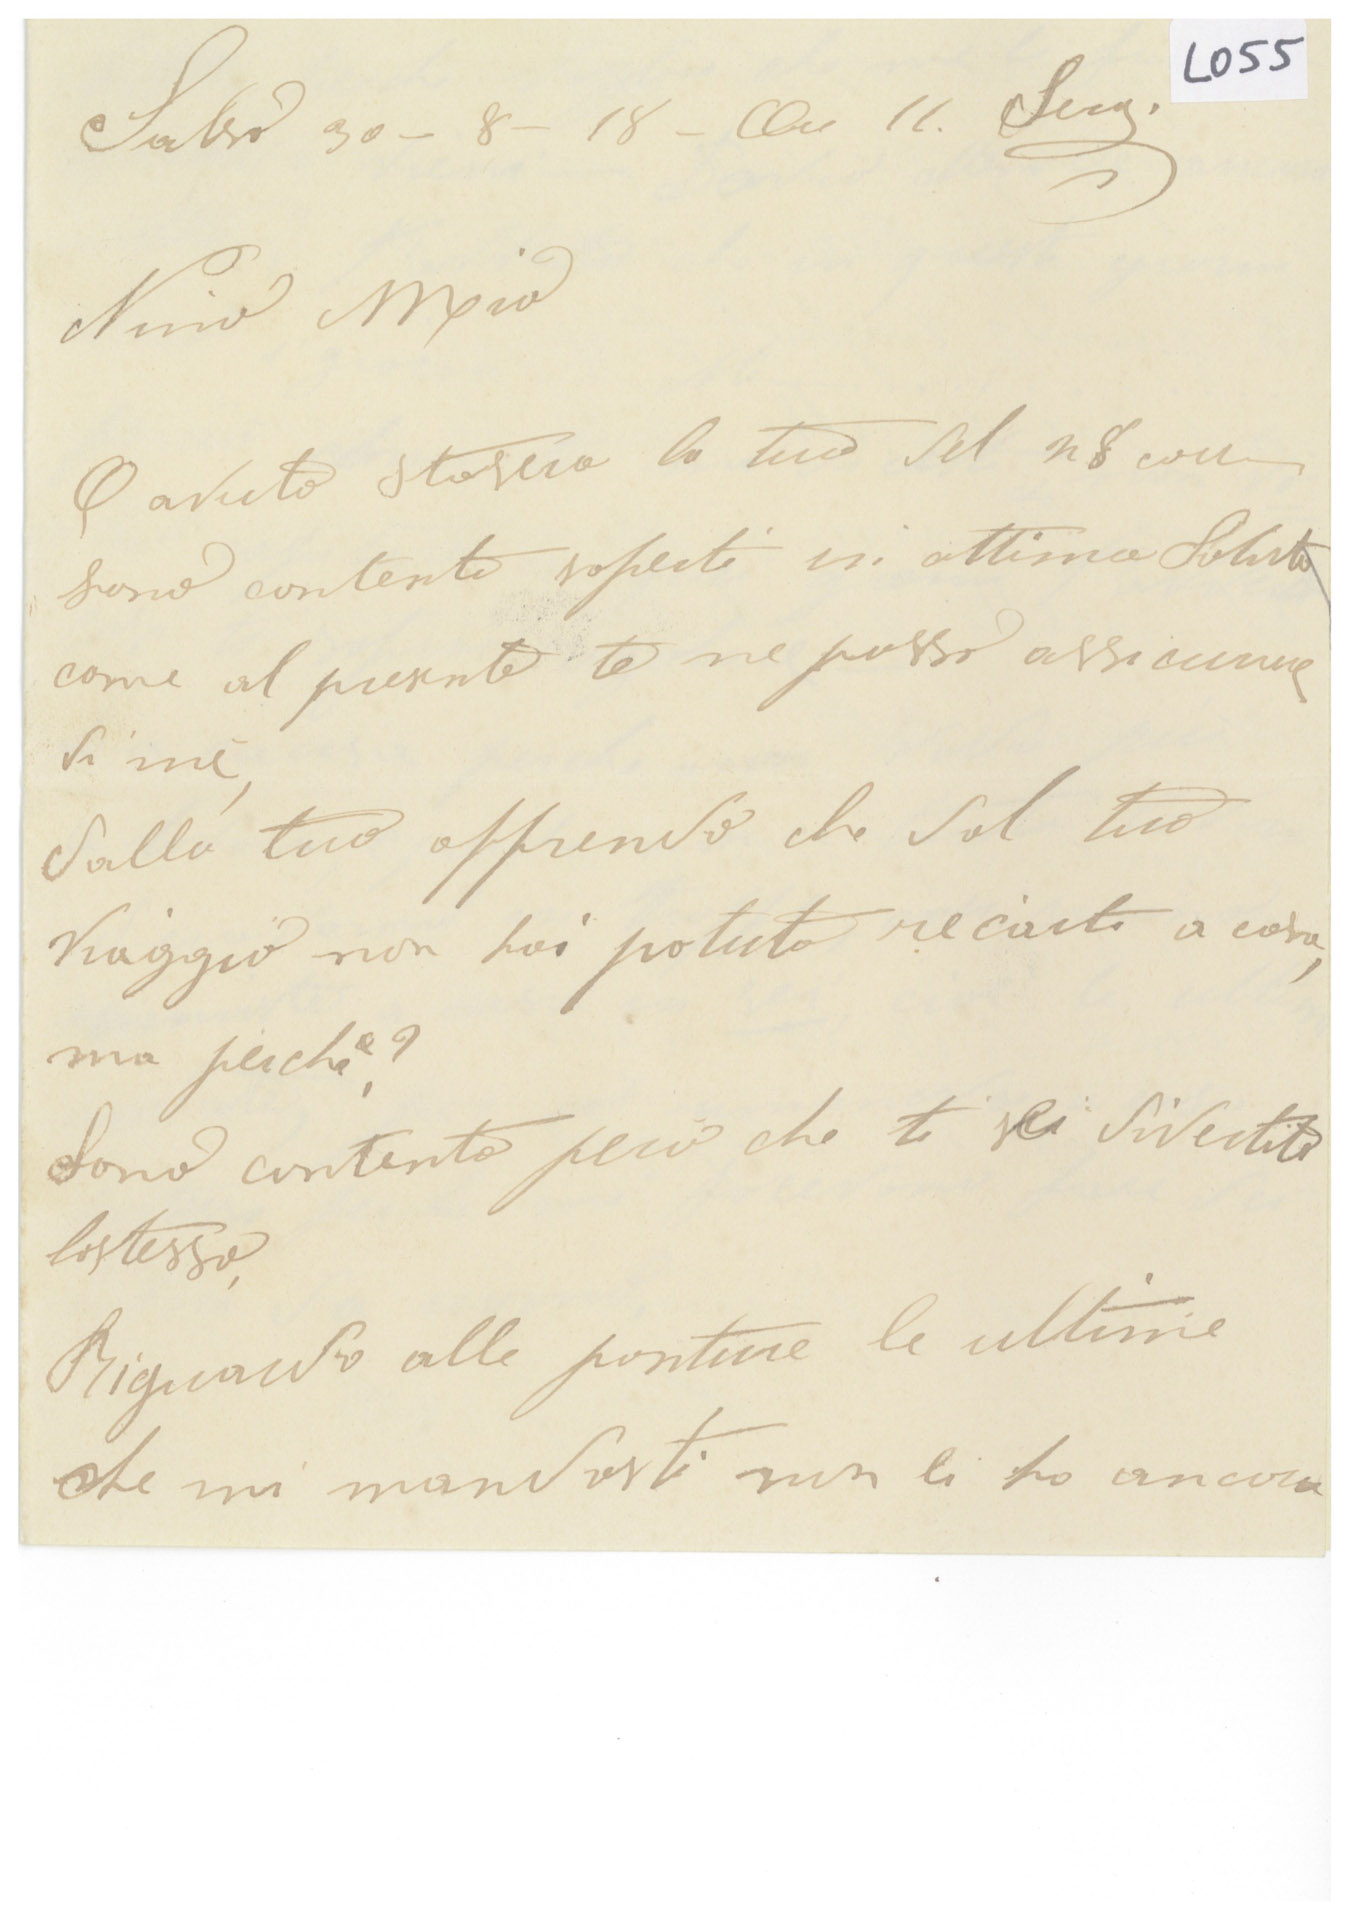 L055
Salsò 30 - 8 - 18 - Ore 11. Serg.
Nino Mio
O avuto stasera la tua del 28 corr
sono contento saperti in ottima Saluto
come al presente te ne posso assicurare
di me,
dalla tua apprendo che dal tuo
viaggio non hai potuto recarti a casa,
ma perchè?
Sono contento però che ti sei divertito
lostesso,
Riguardo alle punture le ultime
che mi mandasti non li ho ancora